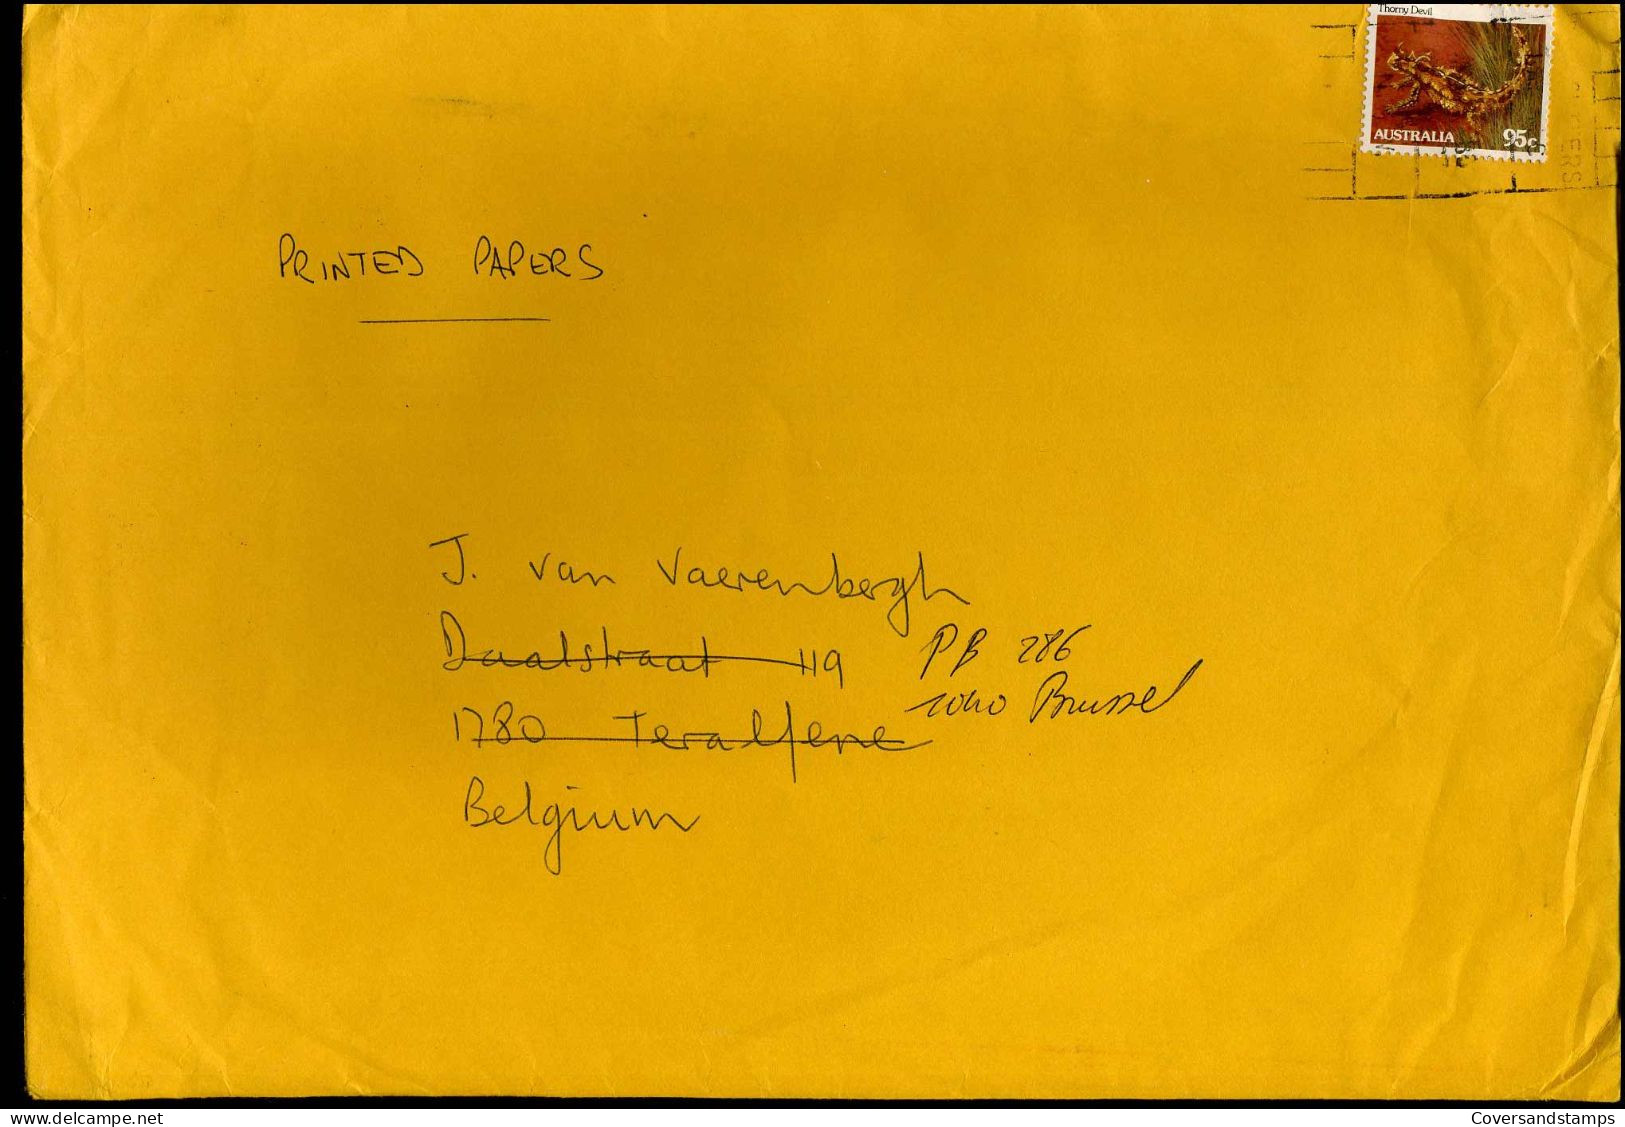 Thorny Devil
AUSTRALIA 95c
PRINTED PAPERS
J. van Vaerenbergh
Daalstraat 119 PB 286
1040 Brussel
1780 Teralfene
Belgium
delcampe.net
Coversandstamps